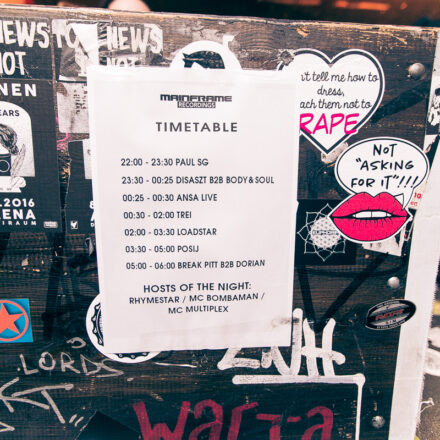 NEWS
NOT
TOX NEWS
NOT
NEN
YEARS
.2016
ENA
IRAUM
MAINFRAME
RECORDINGS
TIMETABLE
22:00 - 23:30 PAUL SG
23:30 - 00:25 DISASZT B2B BODY & SOUL
00:25 - 00:30 ANSA LIVE
00:30 - 02:00 TREI
02:00 - 03:30 LOADSTAR
03:30 - 05:00 POSIJ
05:00 - 06:00 BREAK PITT B2B DORIAN
HOSTS OF THE NIGHT:
RHYMESTAR / MC BOMBAMAN /
MC MULTIPLEX
't tell me how to
dress,
ach them not to
RAPE
NOT
"ASKING
FOR IT"!!!
LORDS
warta